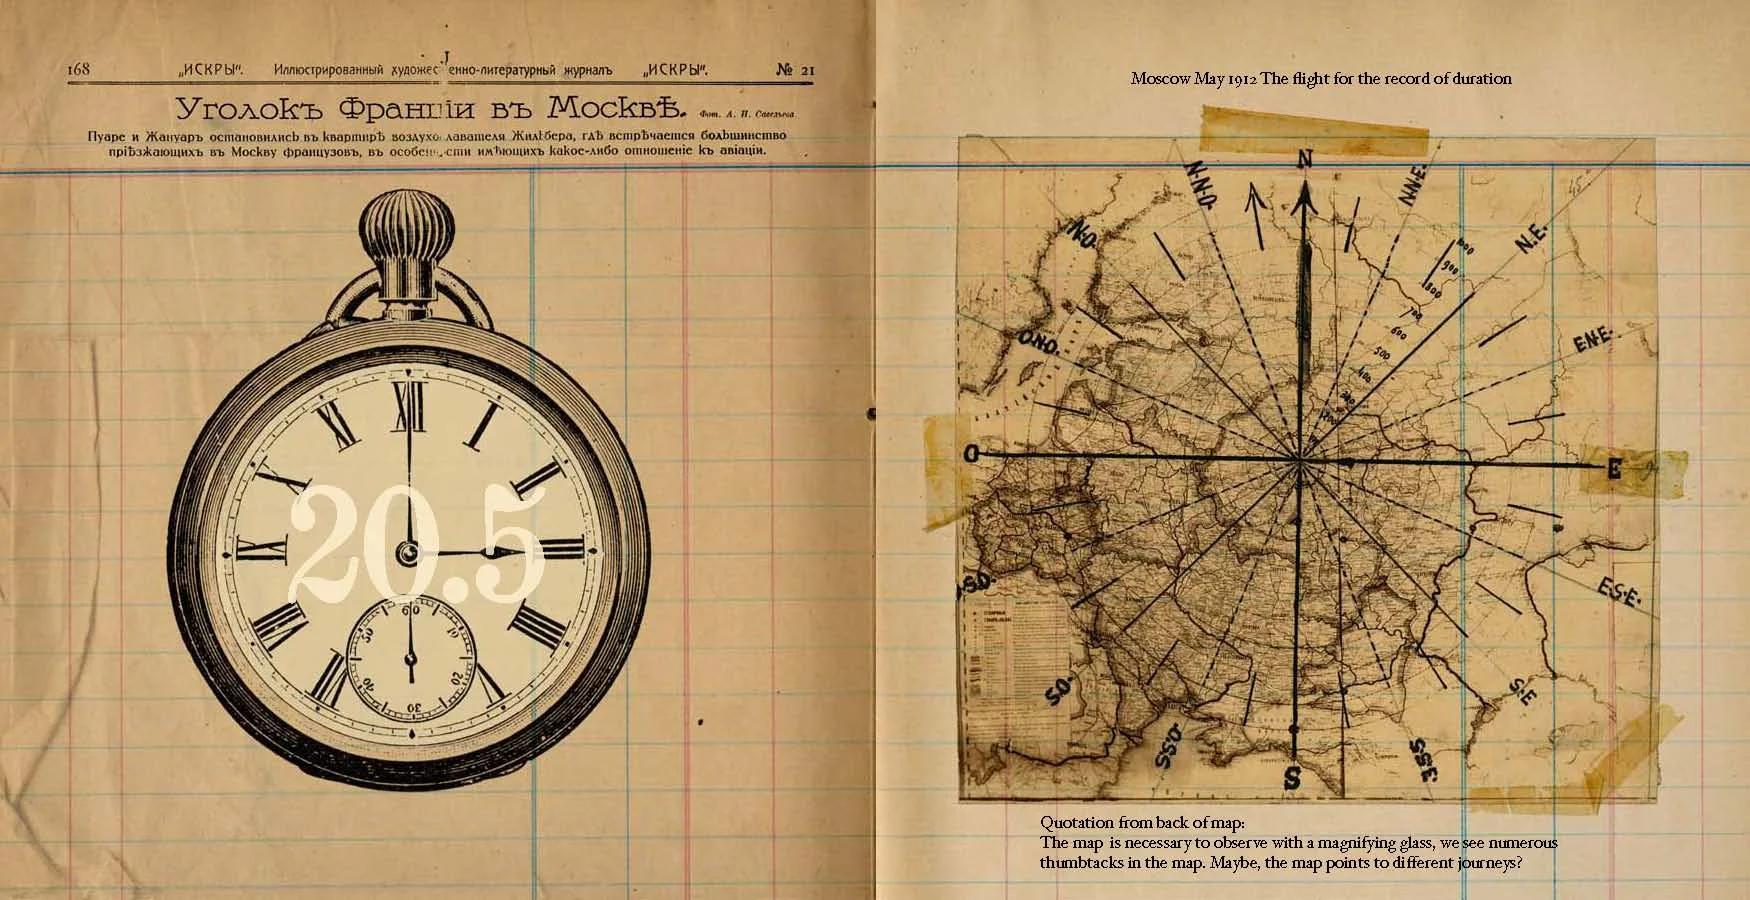 168 „ИСКРЫ“. Иллюстрированный художес енно-литературный журналъ „ИСКРЫ“. № 21
Уголокъ Франціи въ Москвѣ. Фот. А. И. Савельева.
Пуаре и Жануаръ остановились въ квартирѣ воздухо лавателя Жильбера, гдѣ встрѣчается большинство
пріѣзжающихъ въ Москву французовъ, въ особен сти имѣющихъ какое-либо отношеніе къ авіаціи.
XII
I
II
III
IIII
V
VII
VIII
IX
X
XI
20.5
60
10
20
30
40
50
Moscow May 1912 The flight for the record of duration
N
N.N.O.
N.N.E.
N.O.
N.E.
45°
1000
900
800
700
600
500
400
300
O.N.O.
E.N.E.
O
E
O.S.O.
E.S.E.
S.O.
S.E.
S.S.O.
S.S.E.
S
Quotation from back of map:
The map is necessary to observe with a magnifying glass, we see numerous
thumbtacks in the map. Maybe, the map points to different journeys?